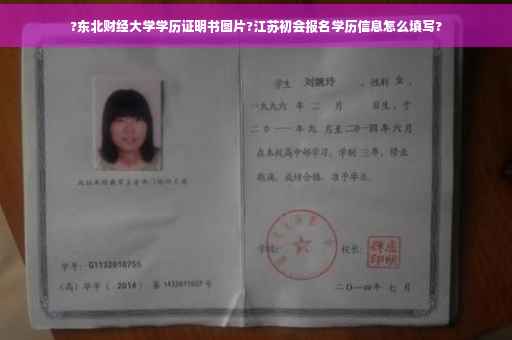 ?东北财经大学学历证明书图片?江苏初会报名学历信息怎么填写?
学生 刘婉玲 ，性别 女 ，
一九九六 年 二 月 日生，于
二〇一一年 九 月至二〇一四年 六 月
在本校高中部学习，学制 三年，修业
期满，成绩合格，准予毕业。
学校：
校长：
学号： G1132010755
（高）毕字（ 2014 ）第 1432011007 号
二〇一四年 七 月